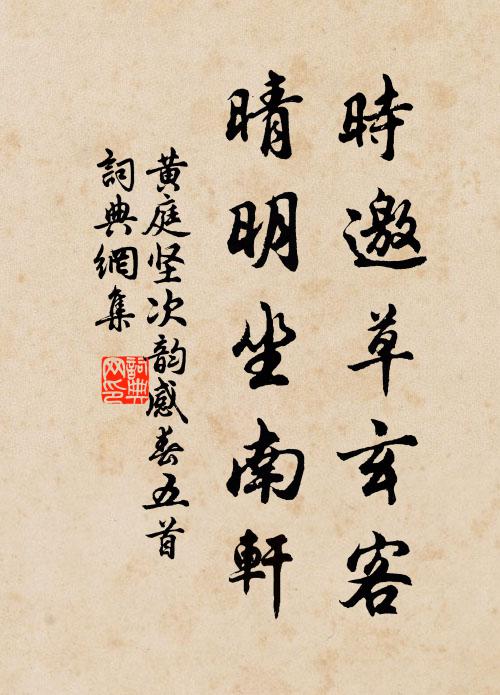 時邀草玄客
晴明坐南軒
黄庭坚次韵感春五首
詞典網集
詞典網印